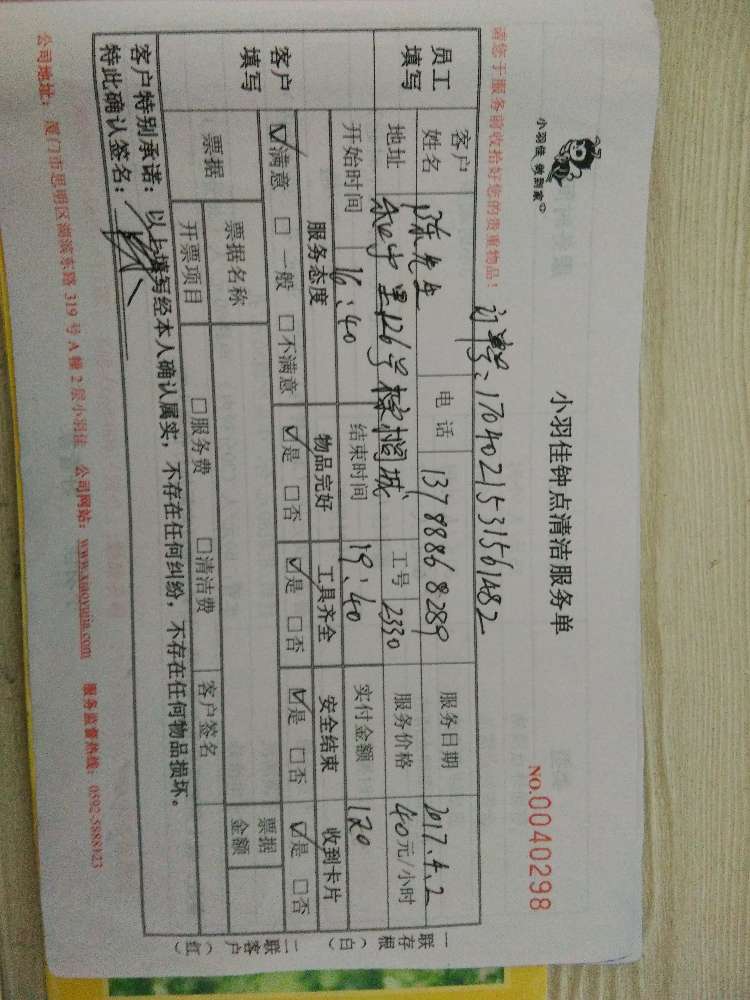 小羽佳 做到家
小羽佳钟点清洁服务单
NO.0040298
请您于服务前收拾好您的贵重物品！
订单号：1704021531561482
员工填写
客户姓名 陈先生 电话 13788868289 服务日期 2017.4.2
地址 126号 工号 2330 服务价格 40元/小时
开始时间 16:40 结束时间 19:40 实付金额 120
客户填写
服务态度 物品完好 工具齐全 安全结束 收到卡片
☑满意 □一般 □不满意 ☑是 □否 ☑是 □否 ☑是 □否 ☑是 □否
票据 票据名称 票据金额
开票项目 □服务费 □清洁费 客户签名
客户特别承诺：以上填写经本人确认属实，不存在任何纠纷，不存在任何物品损坏。
特此确认签名：
公司地址：厦门市思明区湖滨东路 319 号 A 幢 2 层小羽佳 公司网站：www.xiaoyujia.com 服务监督热线：0592-5888123
一联存根（白） 二联客户（红）